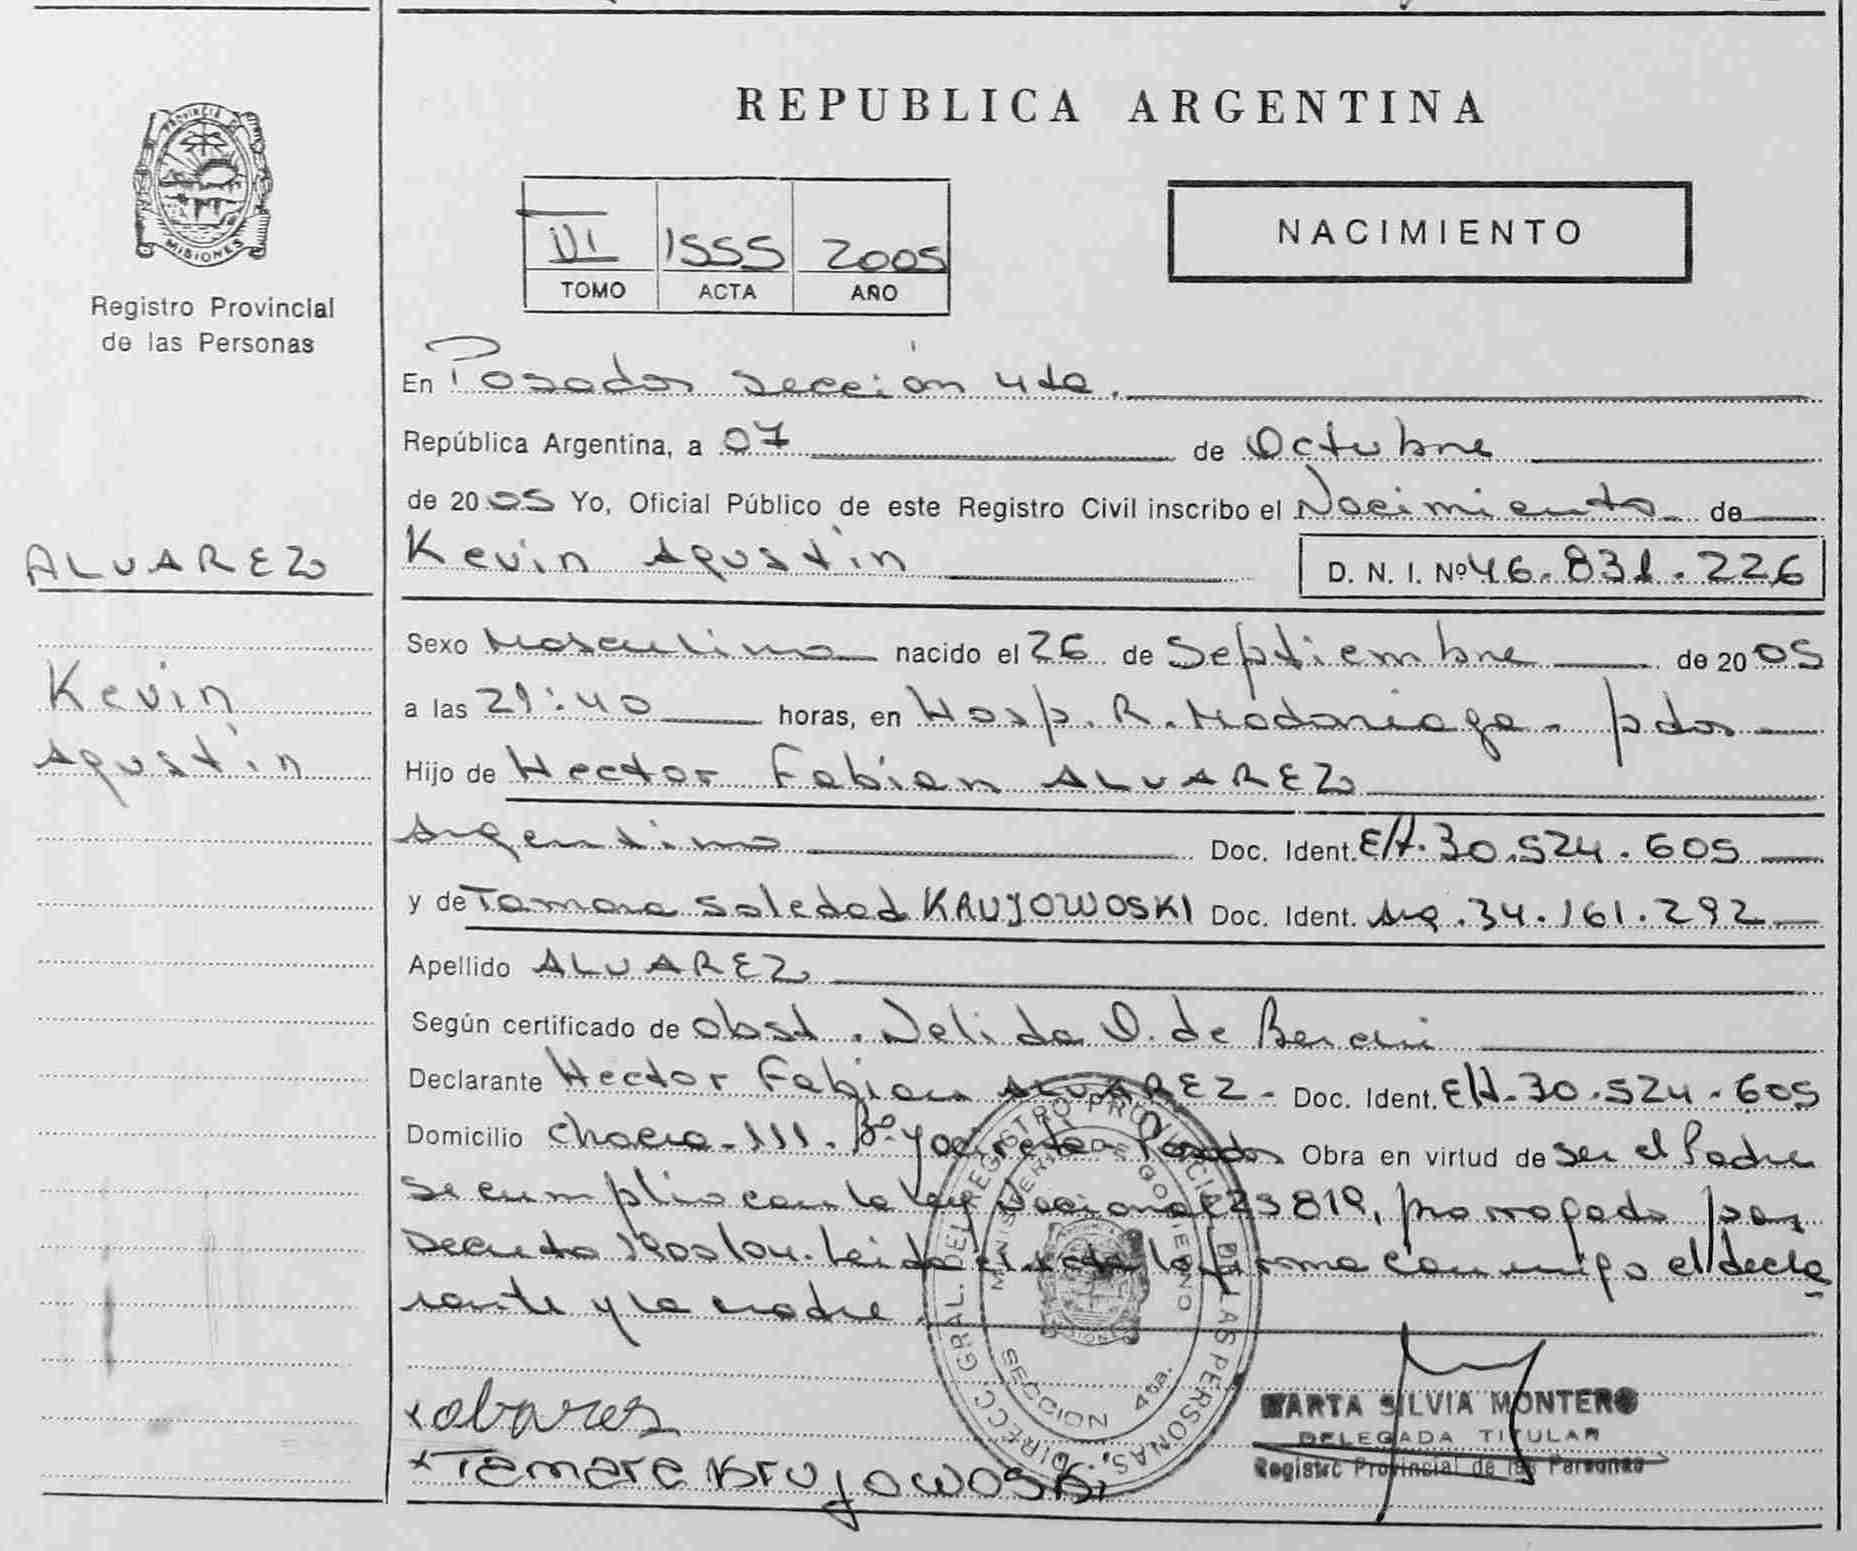 REPUBLICA ARGENTINA
PROVINCIA DE
MISIONES
Registro Provincial
de las Personas
III 1555 2005
TOMO ACTA AÑO
NACIMIENTO
En Posadas sección 4ta.
República Argentina, a 07 de Octubre
de 2005 Yo, Oficial Público de este Registro Civil inscribo el Nacimiento de
ALVAREZ
Kevin Agustín
Kevin Agustín D. N. I. Nº 46.831.226
Sexo Masculino nacido el 26 de Septiembre de 2005
a las 21:40 horas, en Hosp. R. Madariaga - pdas
Hijo de Hector Fabian ALVAREZ
Argentino Doc. Ident. E/t. 30.524.605
y de Tamara Soledad KRUJOWOSKI Doc. Ident. Arg. 34.161.292
Apellido ALVAREZ
Según certificado de obst. Nelida O. de
Declarante Hector Fabian ALVAREZ - Doc. Ident. E/t. 30.524.605
Domicilio Chacra - 111 - Bº Yacireta Posadas Obra en virtud de Ser el Padre
Se cumplio con la Ley Nacional 23819, prorrogado por
Decreto 1900/04. Leida el acta la firma conmigo el decla
rante y la madre.
DIRECC. GRAL. DEL REGISTRO PROVINCIAL DE LAS PERSONAS
MINISTERIO DE GOBIERNO
SECCION 4ta.
x alvares
x Tamara Krujowoski
MARTA SILVIA MONTERO
DELEGADA TITULAR
Registro Provincial de las Personas